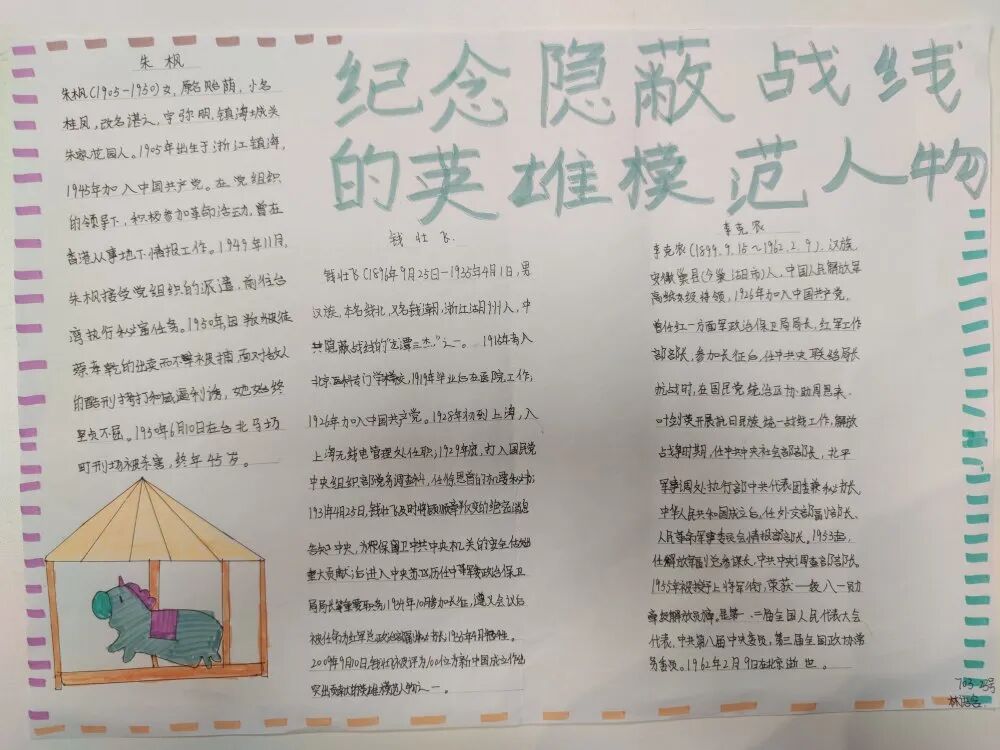 纪念隐蔽战线
的英雄模范人物
朱枫
朱枫(1905-1950)女,原名贻荫,小名
桂凤,改名谌之,字弥明,镇海城关
朱家花园人。1905年出生于浙江镇海,
1945年加入中国共产党。在党组织
的领导下,积极参加革命活动,曾在
香港从事地下情报工作。1949年11月,
朱枫接受党组织的派遣,前往台
湾执行秘密任务。1950年,因叛徒
蔡孝乾的出卖而不幸被捕,面对敌人
的酷刑拷打和威逼利诱,她始终
坚贞不屈。1950年6月10日在台北马场
町刑场被杀害,终年45岁。
钱壮飞.
钱壮飞(1896年9月25日-1935年4月1日,男
汉族,本名钱北,又名钱潮,浙江湖州人,中
共隐蔽战线的"龙潭三杰,"之一。1915年考入
北京医科专门学校,1919年毕业后在医院工作,
1926年加入中国共产党。1928年初到上海,入
上海无线电管理处任职;1929年底,打入国民党
中央组织部党务调查科,任徐恩曾的机要秘书;
1931年4月25日,钱壮飞及时将顾顺章叛变的绝密消息
告知中央,为保卫中共中央机关的安全作出
重大贡献;后进入中央苏区历任中革军委政治保卫
局局长等重要职务;1934年10月参加长征,遵义会议后
被任命为红军总政治部副秘书长,1935年4月牺牲。
2009年9月10日,钱壮飞被评为100位为新中国成立作出
突出贡献的英雄模范人物之一。
李克农
李克农(1899.9.15~1962.2.9).汉族
安徽巢县(今巢湖市)人,中国人民解放军
高级将领,1926年加入中国共产党,
曾任红一方面军政治保卫局局长,红军工作
部部长,参加长征后,任中共中央联络局长
抗战时,在国民党统治区协助周恩来、
叶剑英开展抗日民族统一战线工作,解放
战争时期,任中共中央社会部部长,北平
军事调处执行部中共代表团秘书长,
中华人民共和国成立后,任外交部副部长、
人民革命军事委员会情报部部长。1953年,
任解放军副总参谋长,中共中央调查部部长。
1955年被授予上将军衔,荣获一级八一勋
章、一级解放勋章。是第一、二届全国人民代表大会
代表,中共第八届中央委员,第三届全国政协常
务委员。1962年2月9日在北京逝世。
703 25号